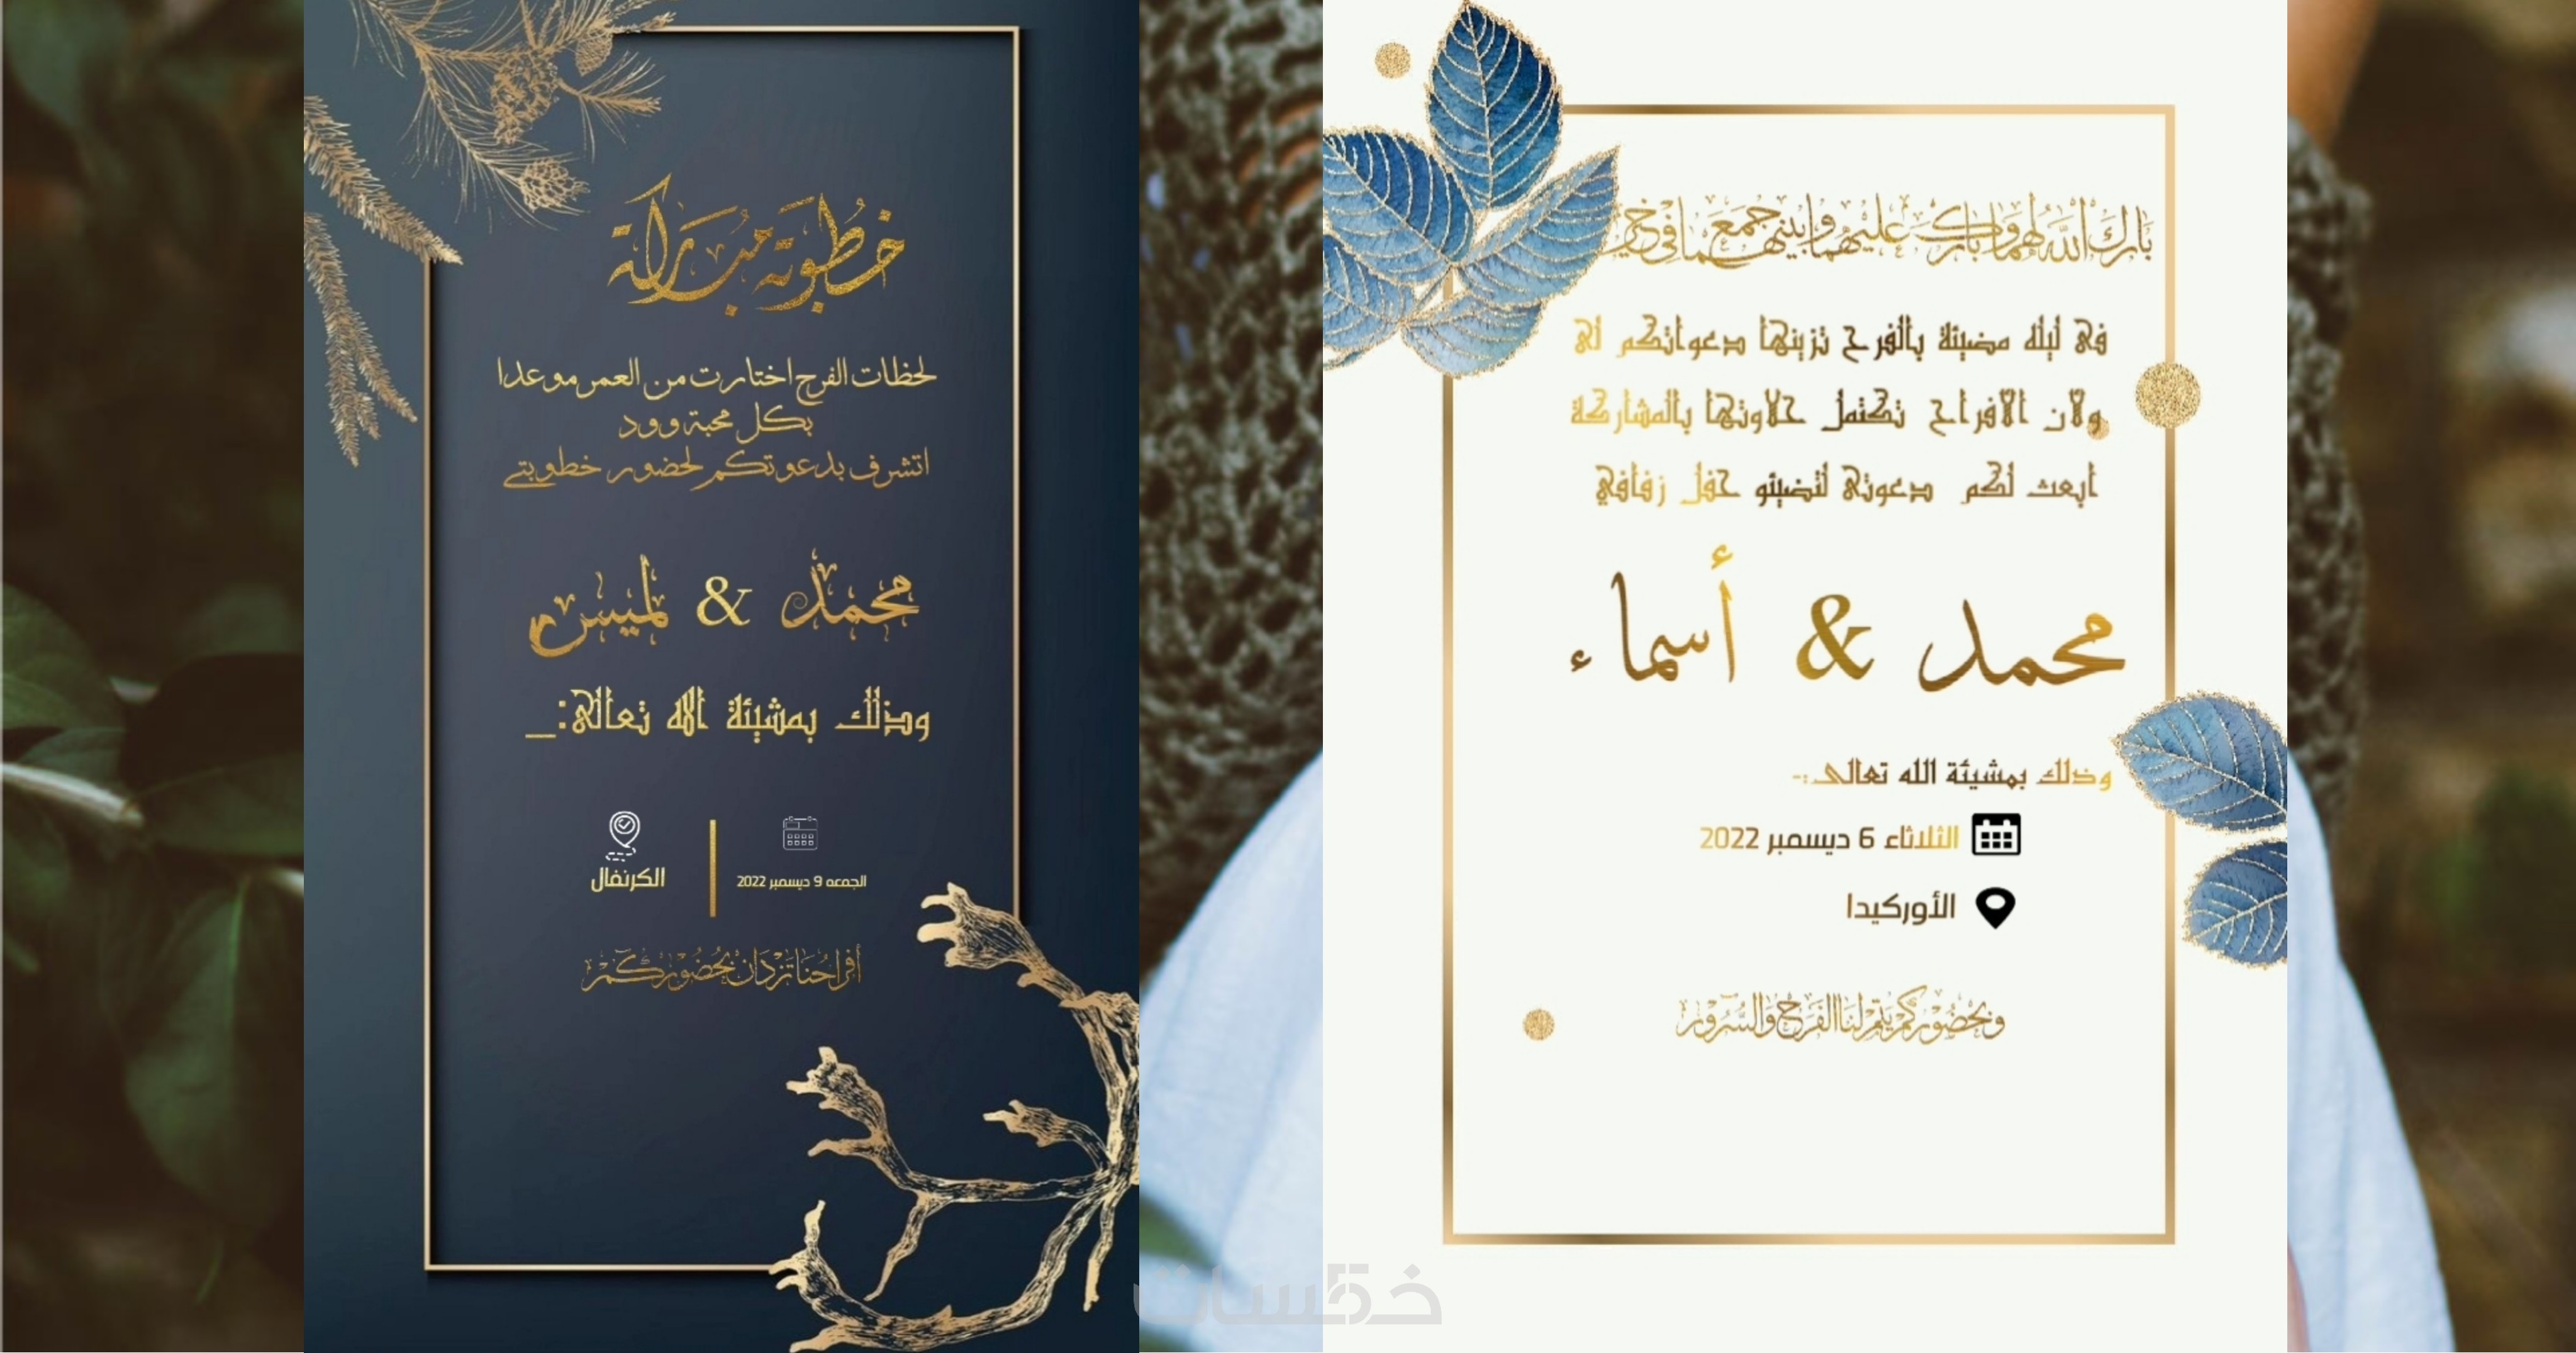 خطوبة مباركة
لحظات الفرح اختارت من العمر موعدا
بكل محبة وود
اتشرف بدعوتكم لحضور خطوبتي
محمد & لميس
وذلك بمشيئة الله تعالى:_
الجمعه 9 ديسمبر 2022
الكرنفال
أفراحنا تزدان بحضوركم
بارك الله لهما وبارك عليهما وجمع بينهما في خير
في ليله مضيئة بالفرح تزينها دعواتكم لي
ولان الافراح تكتمل حلاوتها بالمشاركة
ابعث لكم دعوتى لتضيئو حفل زفافي
محمد & أسماء
وذلك بمشيئة الله تعالى:-
الثلاثاء 6 ديسمبر 2022
الأوركيدا
وبحضوركم يتم لنا الفرح والسرور
خمسات